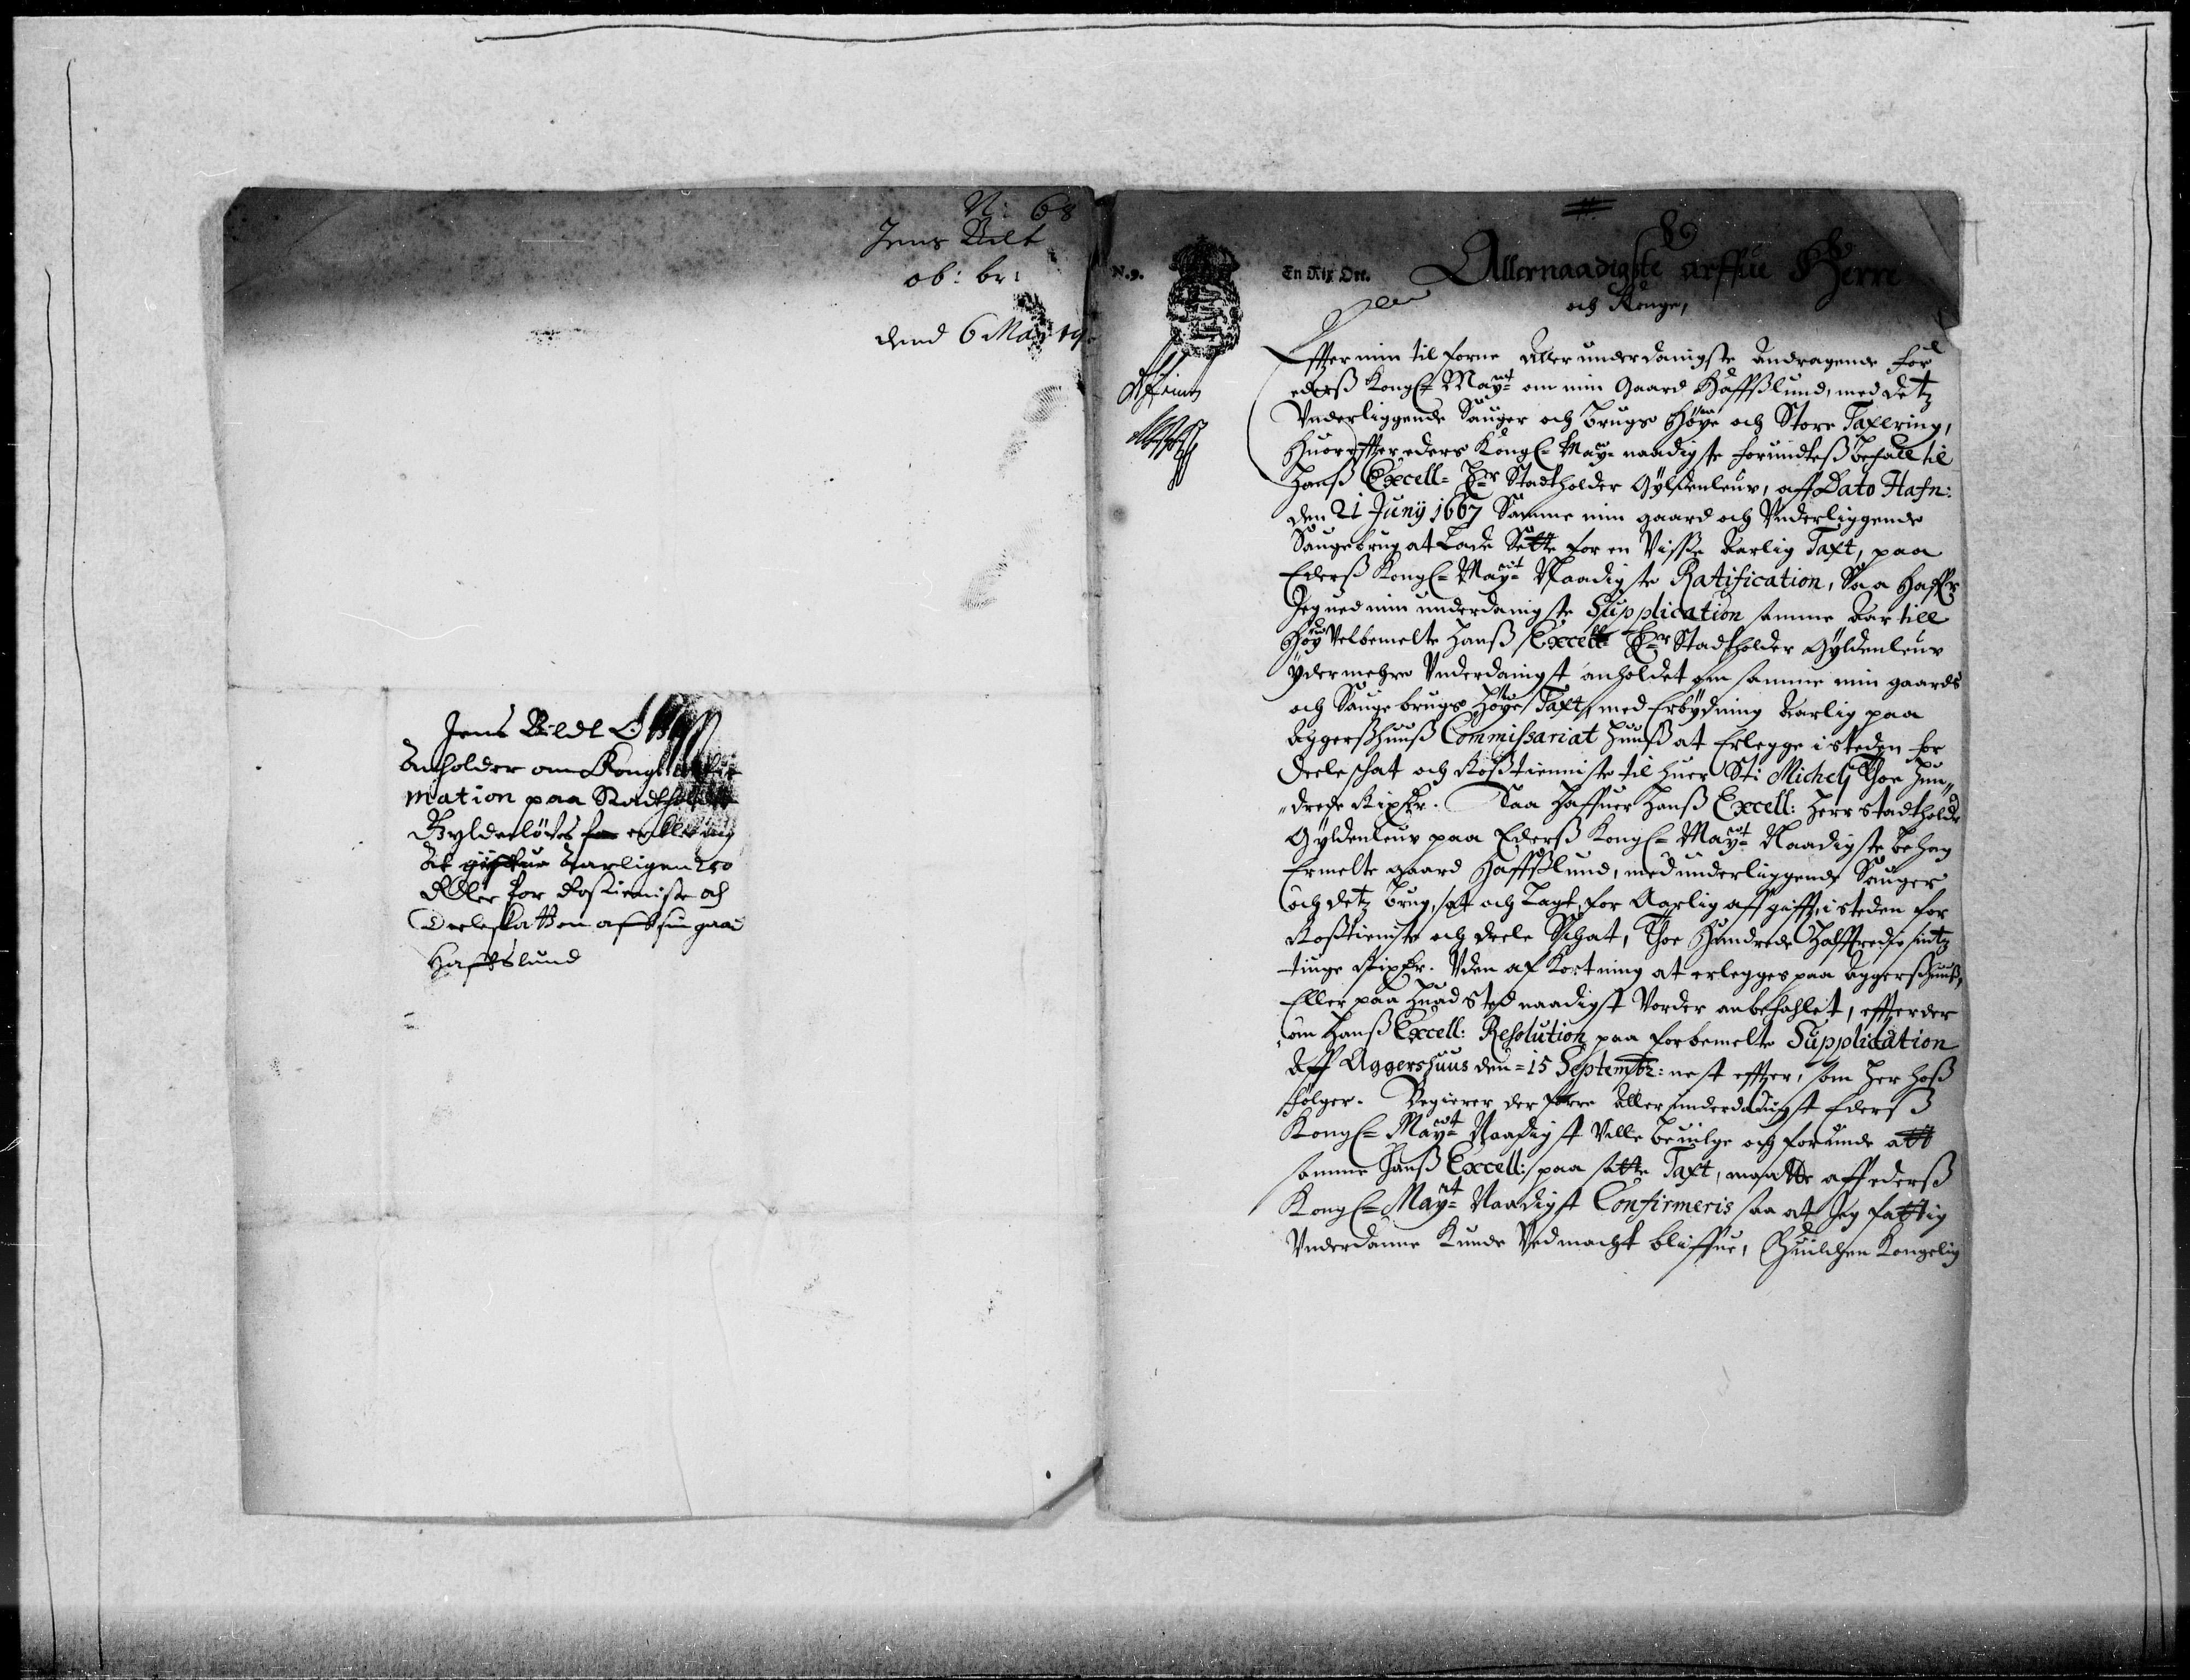 N: 68
Jens Bilt
ob: br:
dend 6 May
Jens Bildt
Anholder om Kongl
mation paa Stadtholder
Gyldenløves erklering
At Aarligen 250
Rdlr for Rostieniste och
Deeleskatten aff sin gaard
Haffslund
N. 9.
En Rix Ort.
Allernaadigste arffue Herre
och Konge,
Effter min til forne Aller underdanigste Andragende for
ederß Kongl= Mayt= om min Gaard Haffßlund, med detz
Vnderliggende Sauger och brugs Høye och Store Taxering,
Huoreffter eders Kongl= May= naadigste forundteß befall til
Hanß Excell= Hr Stadtholder Gyldenleuv, aff Dato Hafn:
den 21 Junij 1667 Samme min gaard och Vnderliggende
Saugebrug at Lade Sette for en Visße Aarlig Taxt, paa
Ederß Kongl= Mayt= Naadigste Ratification, Saa Haffr
Jeg ved min underdanigste Supplication samme Aar till
Høy Velbemelte Hanß Excell= Hr Stadtholder Gyldenleuv
ydermehre Vnderdanigst anholdet om samme min gaards
och Saugebrugs Høye Taxt, med Erbydning Aarlig paa
Aggerßhuuß Commissariat Huuß at Erlegge i steden for
Deeleschat och Roßtienniste til huer Sti Michelj Thoe Hun„
„drede Rixdr. Saa Haffuer Hanß Excell: Herr Stadtholder
Gyldenleuv paa Ederß Kongl= Mayt= Naadigste behag
Ermelte gaard Haffßlund, med underliggende Sauger
och detz brug, sat och Lagt, for Aarlig aff gifft, i steden for
Roßtieniste och deele Schat, Thoe Hundrede Halfftredie sintz
tiuge Rixdr. Vden af Kortning at erlegges paa Aggerßhuuß,
Eller paa Huad Sted naadigst Vorder anbefahlet, effterder
om Hanß Excell: Resolution paa forbemelte Supplication
Aff Aggershuus den = 15 Septembr: nest effter, som her hoß
følger. Begierer der forre Aller underdanigst Ederß
Kongl= Mayt= Naadigst Ville beuilge och forunde att
samme Hanß Excell: paa satte Taxt, maatte aff ederß
Kongl= Mayt= Naadigst Confirmeris saa at Jeg fattig
Vnderdanne Kunde Ved macht bliffue, Huilchen Kongelig